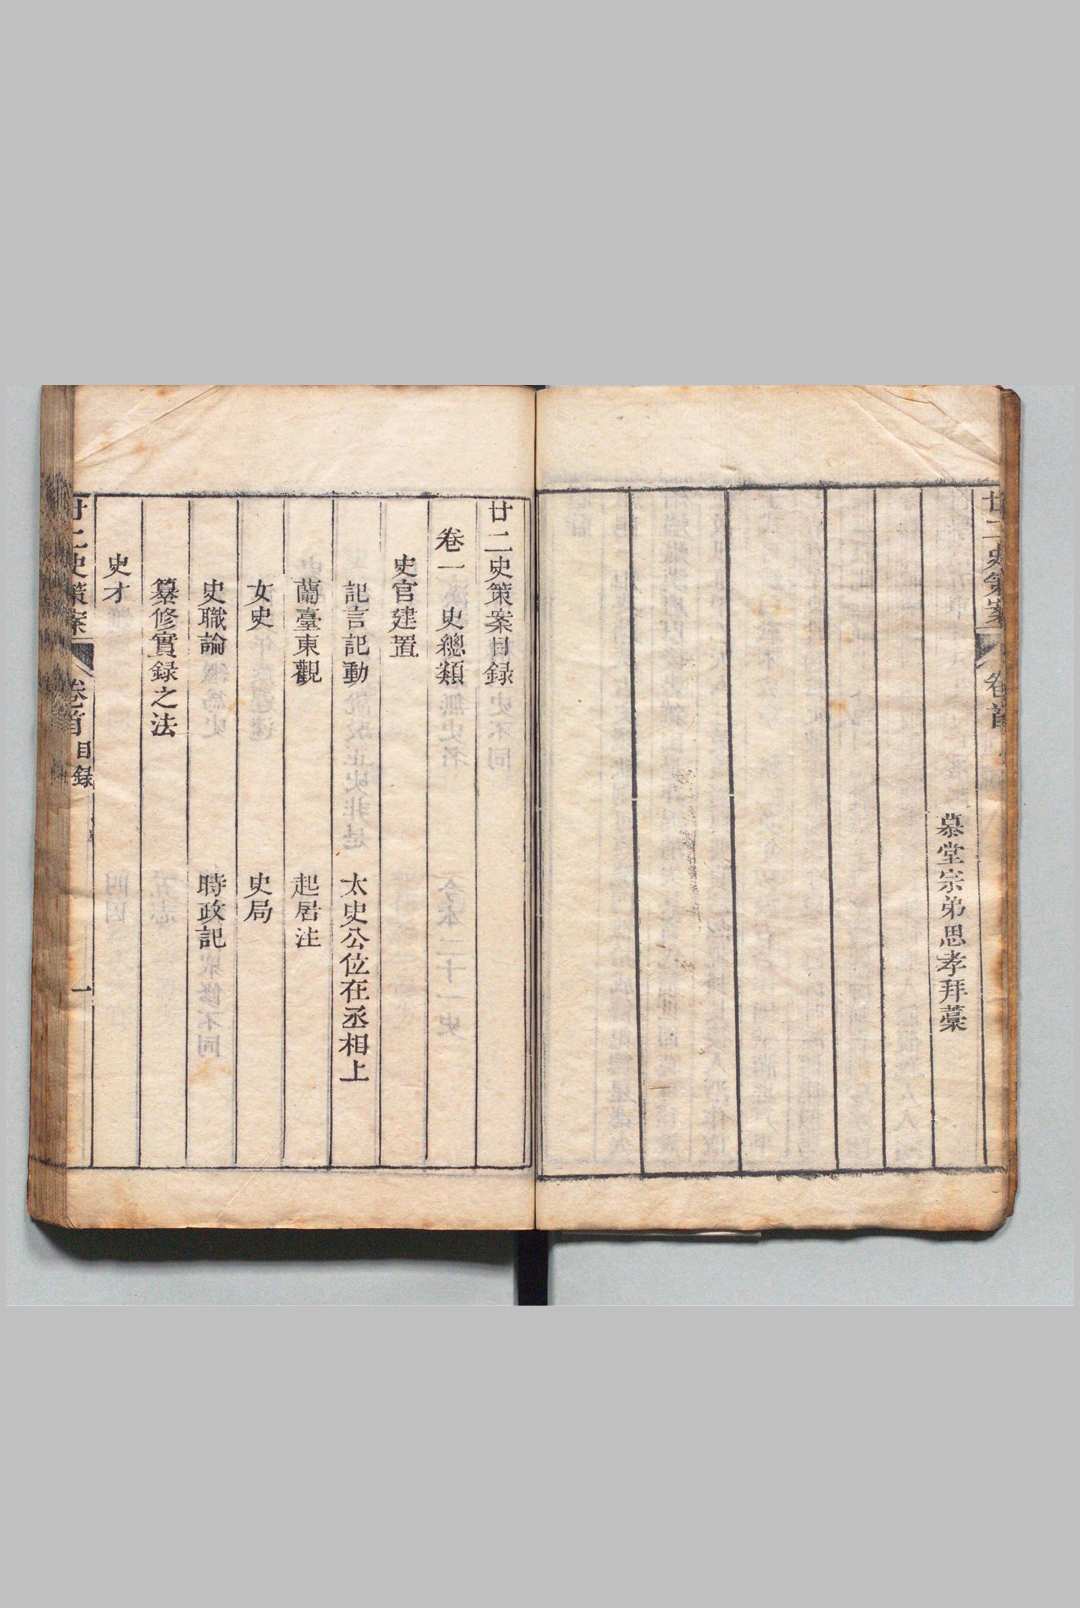 廿二史策案
卷首
慕堂宗弟思孝拜藳
廿二史策案目録
卷一 史總類
史官建置
記言記動 太史公位在丞相上
蘭臺東觀 起居注
女史 史局
史職論 時政記
纂修實録之法
史才
廿二史策案
卷首 目録
一